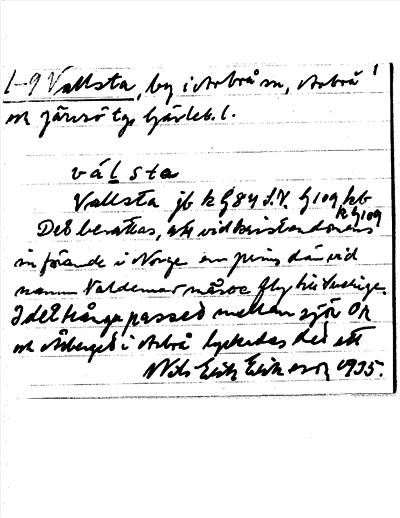 1-9 Vallsta, by i Arbrå sn, Arbrå 1
och Järvsö tg, Gävleb. l.
válsta
Vallsta jb k G84 J.V. G109 kb
k G109
Det berättas, att vid kristendomens
införande i Norge en prins där vid
namn Valdemar måste fly till Sverige.
I det trånga passet mellan sjön Or
och Åsberget i Arbrå lyckades det att
Nils Erik Eriksson 1935.